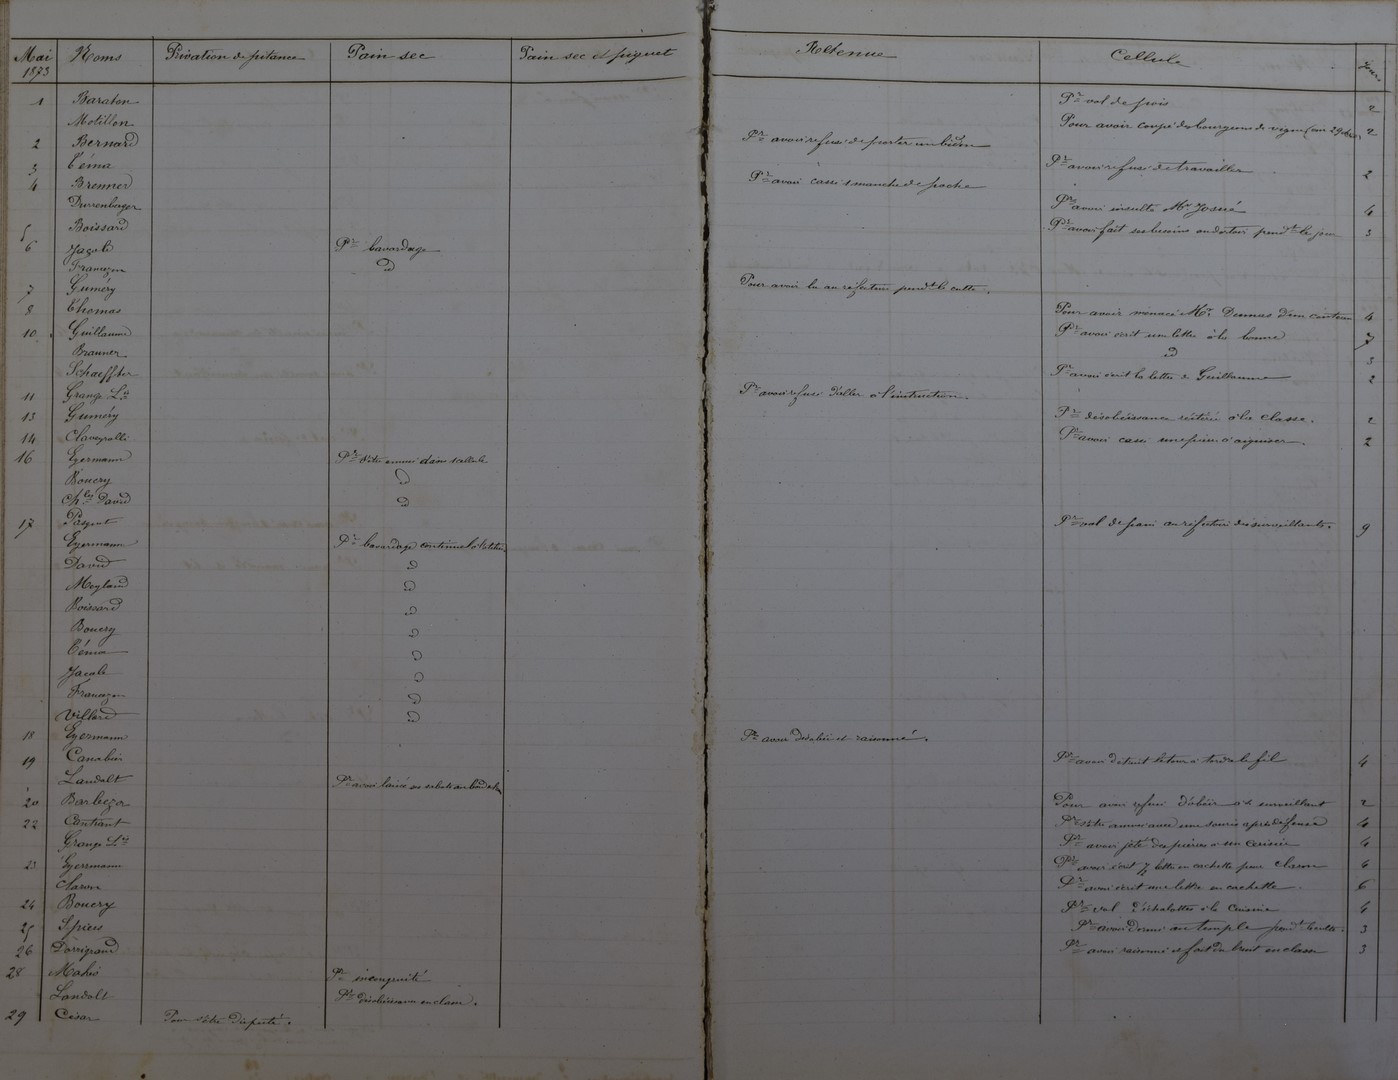 Mai 1873 Noms Privation de pitance Pain sec Pain sec et piquet Retenue Cellule jours
1 Baraton Pr vol de pois 2
Motillon Pour avoir coupé des bourgeons de vigne 2
2 Bernard Pr avoir refusé de porter un
3 Téma Pr avoir refusé de travailler 2
4 Brenner Pr avoir cassé 1 manche de pioche
Durrenberger Pr avoir insulté Mr Josué 4
5 Boissard Pr avoir fait ses besoins au dortoir pendt le jour 3
6 Jacob Pr bavardage
Françon d
7 Guméry Pour avoir lu au réfectoire pendt le culte.
8 Thomas Pour avoir menacé Mr d'un couteau 4
10 Guillaume Pr avoir écrit une lettre à la 7
Brauner d 3
Schaeffter Pr avoir écrit la lettre de Guillaume 2
11 Grange Ls Pr avoir refusé d'aller à l'instruction.
13 Guméry Pr désobéissance réitérée à la classe. 2
14 Pr avoir cassé une à aiguiser. 2
16 Eyermann Pr s'être
Bouery d
Chles David d
17 Pr vol de pain au réfectoire des surveillants. 9
Eyermann Pr bavardage continuel à l'atelier
David d
Meyland d
Boissard d
Bouery d
Téma d
Jacob d
Françon d
Villard d
18 Eyermann Pr avoir désobéi et raisonné.
19 Canabier Pr avoir détruit à tordre le fil 4
Landolt Pr avoir laissé ses sabots au
20 Barbezat Pour avoir refusé d'obéir à 1 surveillant 2
22 Contrant Pr s'être amusé avec une souris après défense 4
Grange Ls Pr avoir jeté des pierres à un 4
23 Eyermann Pr avoir écrit 7 lettres en cachette pour 6
Pr avoir écrit une lettre en cachette. 6
24 Bouery Pr vol d'échalottes à la cuisine 4
25 Spiess Pr avoir dormi au temple pendt le culte. 3
26 Dorrigrand Pr avoir raisonné et fait du bruit en classe 3
28 Pr incongruité
Landolt Pr désobéissance en classe.
29 César Pour s'être disputé.